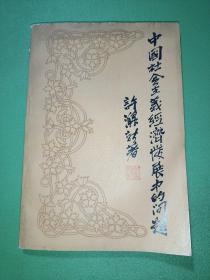 中國社会主義經濟發展中的问题
許滌新著